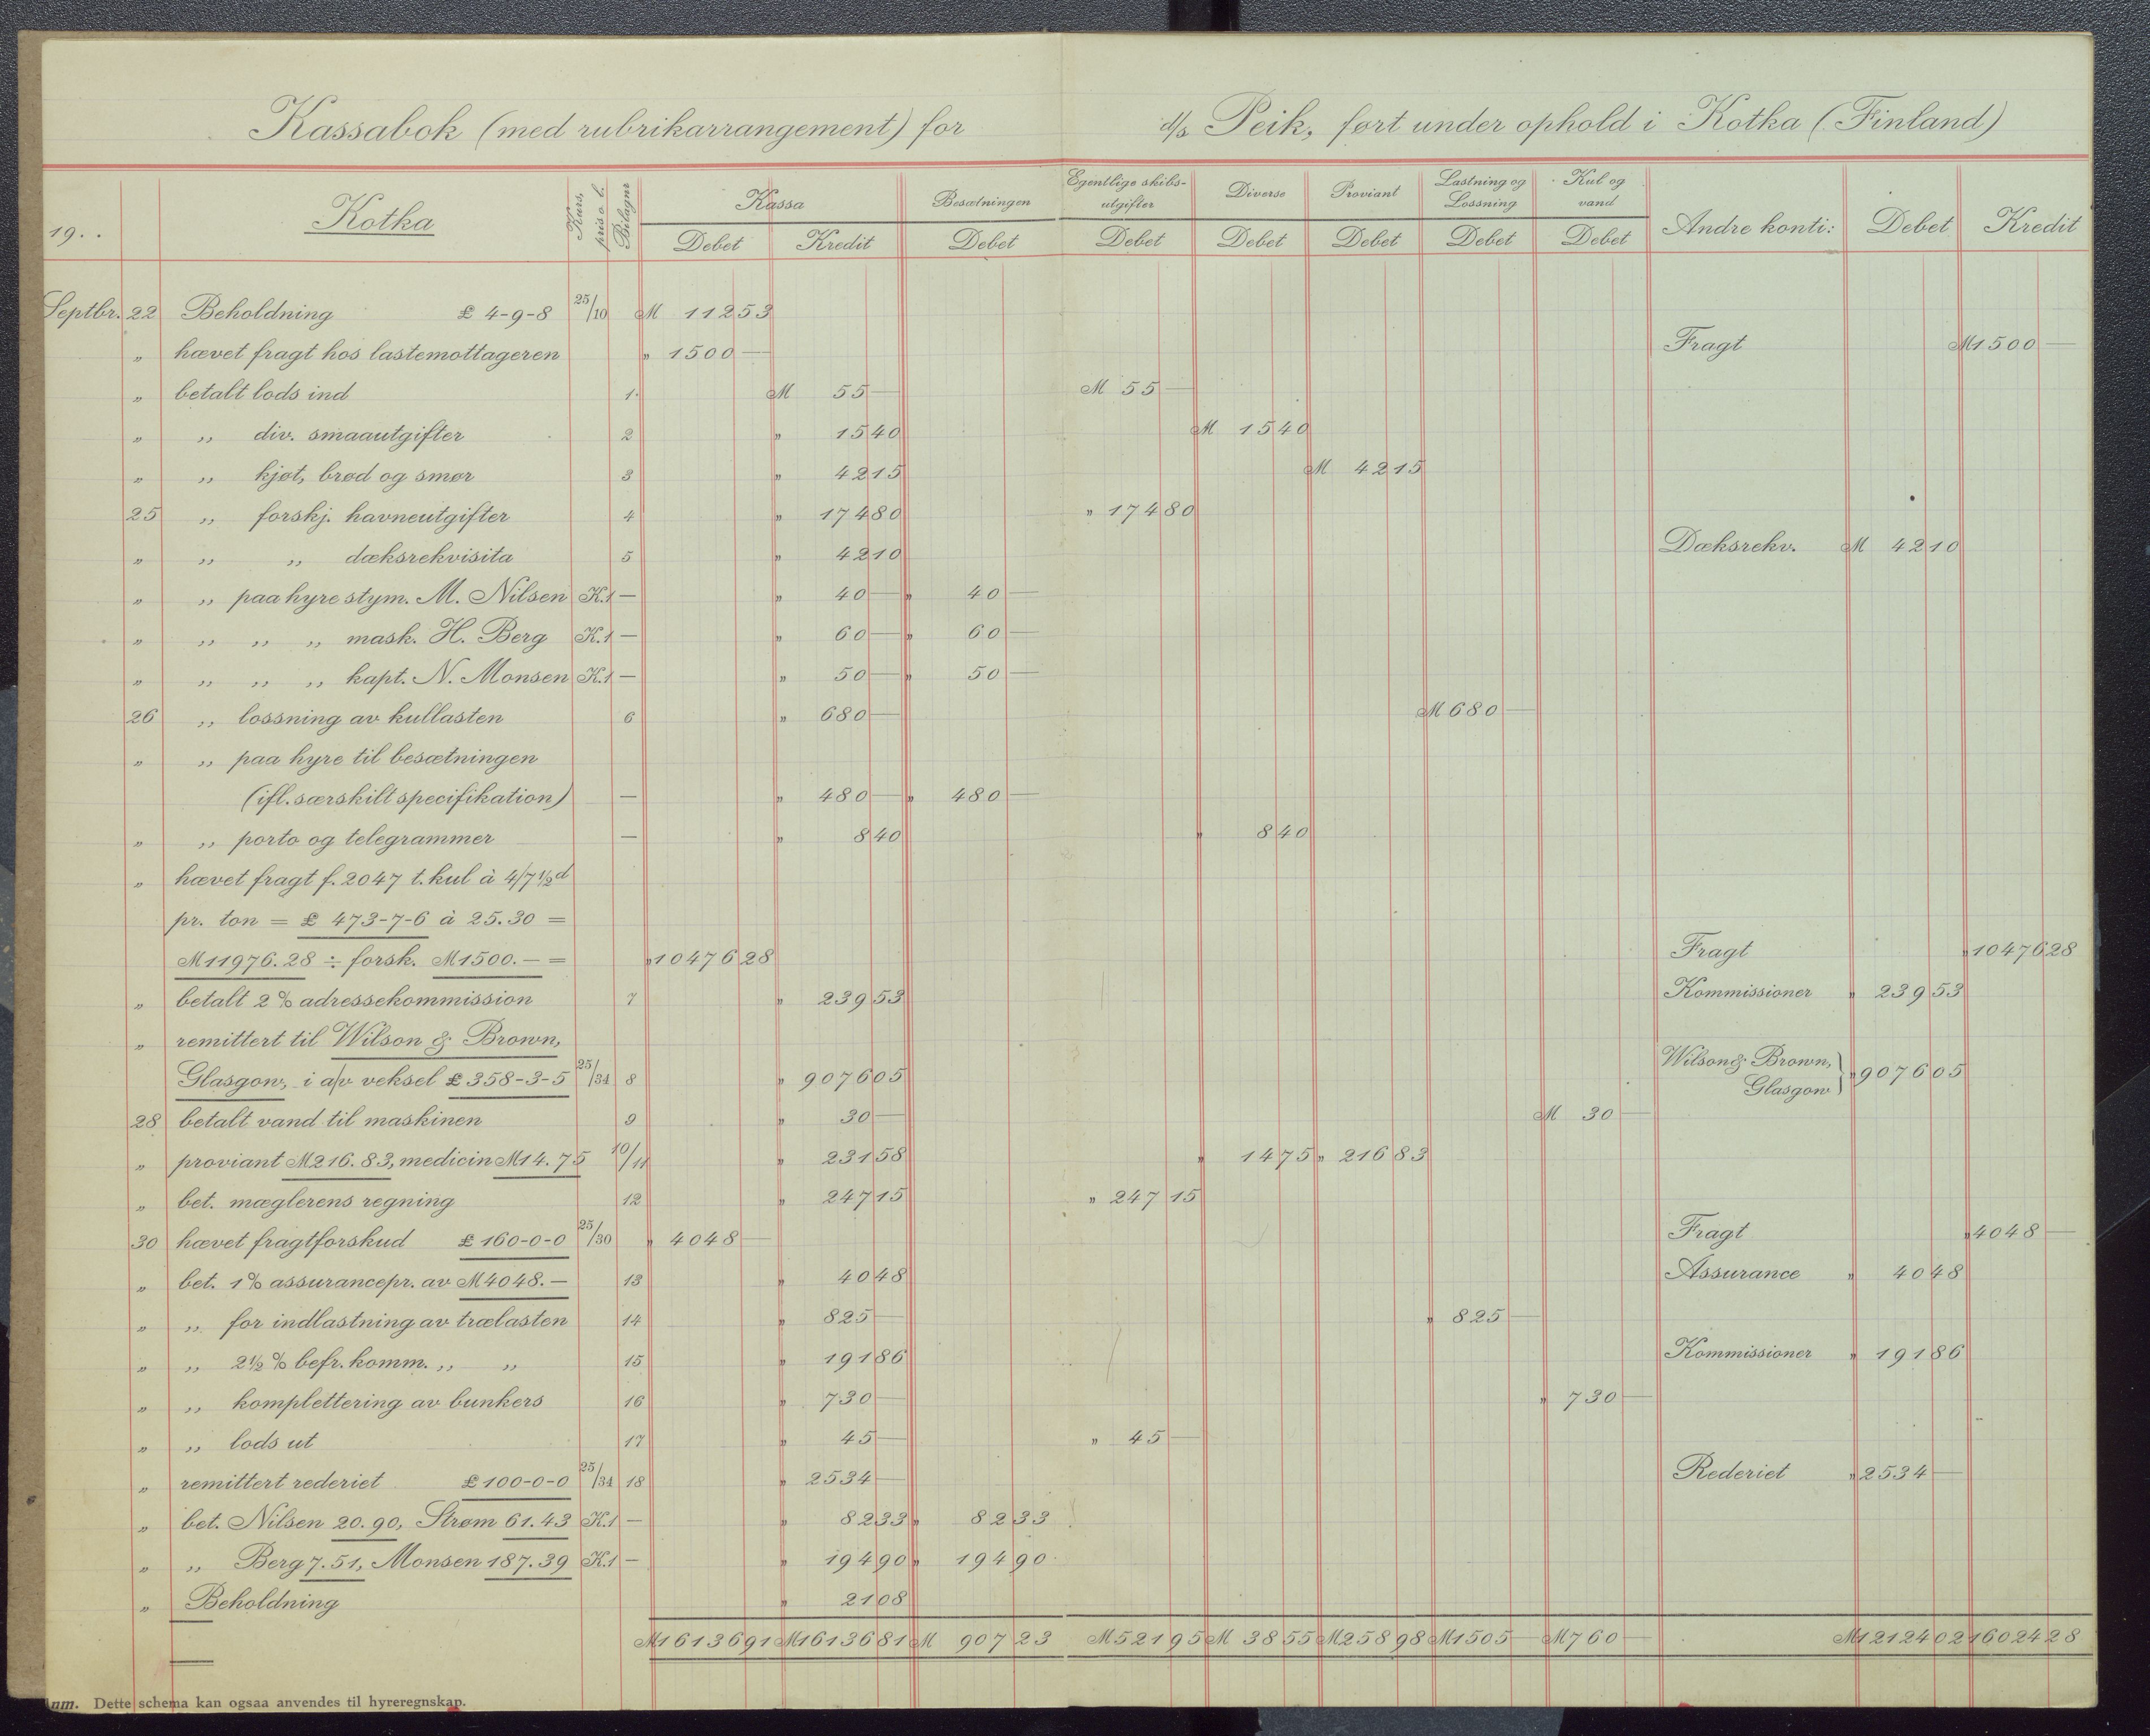 Kassabok (med rubrikarrangement) for d/s Peik, ført under ophold i Kotka (Finland)
19. . Kotka Kurs, pris o. l. Bilagnr Kassa Besætningen Egentlige skibs-utgifter Diverse Proviant Lastning og Lossning Kul og vand Andre konti: Debet Kredit
Debet Kredit Debet Debet Debet Debet Debet Debet
Septbr. 22 Beholdning £ 4-9-8 25/10 M 112 53
„ hævet fragt hos lastemottageren „ 1500 — Fragt M 1500 —
„ betalt lods ind 1. M 55 — M 55 —
„ „ div. smaautgifter 2 „ 15 40 M 15 40
„ „ kjøt, brød og smør 3 „ 42 15 M 42 15
25 „ forskj. havneutgifter 4 „ 174 80 „ 174 80
„ „ „ dæksrekvisita 5 „ 42 10 Dæksrekv. M 42 10
„ „ paa hyre stym. M. Nilsen K.1 — „ 40 — „ 40 —
„ „ „ „ mask. H. Berg K.1 — „ 60 — „ 60 —
„ „ „ „ kapt. N. Monsen K.1 — „ 50 — „ 50 —
26 „ lossning av kullasten 6 „ 680 — M 680 —
„ „ paa hyre til besætningen
(ifl. særskilt specifikation) — „ 480 — „ 480 —
„ „ porto og telegrammer — „ 8 40 „ 8 40
„ hævet fragt f. 2047 t. kul à 4/7½ d
pr. ton = £ 473-7-6 à 25.30 =
M 11976.28 ÷ forsk. M 1500.— = „ 10476 28 Fragt „ 10476 28
„ betalt 2 % adressekommission 7 „ 239 53 Kommissioner „ 239 53
„ remittert til Wilson & Brown,
Glasgow, i a/v veksel £ 358-3-5 25/34 8 „ 9076 05 Wilson & Brown, Glasgow } „ 9076 05
28 betalt vand til maskinen 9 „ 30 — M 30 —
„ proviant M 216.83, medicin M 14.75 10/11 „ 231 58 „ 14 75 „ 216 83
„ bet. mæglerens regning 12 „ 247 15 „ 247 15
30 hævet fragtforskud £ 160-0-0 25/30 „ 4048 — Fragt „ 4048 —
„ bet. 1 % assurancepr. av M 4048.— 13 „ 40 48 Assurance „ 40 48
„ „ for indlastning av trælasten 14 „ 825 — „ 825 —
„ „ 2½ % befr. komm. „ „ 15 „ 191 86 Kommissioner „ 191 86
„ „ komplettering av bunkers 16 „ 730 — „ 730 —
„ „ lods ut 17 „ 45 — „ 45 —
„ remittert rederiet £ 100-0-0 25/34 18 „ 2534 — Rederiet „ 2534 —
„ bet. Nilsen 20.90, Strøm 61.43 K.1 — „ 82 33 „ 82 33
„ „ Berg 7.51, Monsen 187.39 K.1 — „ 194 90 „ 194 90
„ Beholdning „ 21 08
M 16136 91 M 16136 81 M 907 23 M 521 95 M 38 55 M 258 98 M 1505 — M 760 — M 12124 02 16024 28
nm. Dette schema kan ogsaa anvendes til hyreregnskap.